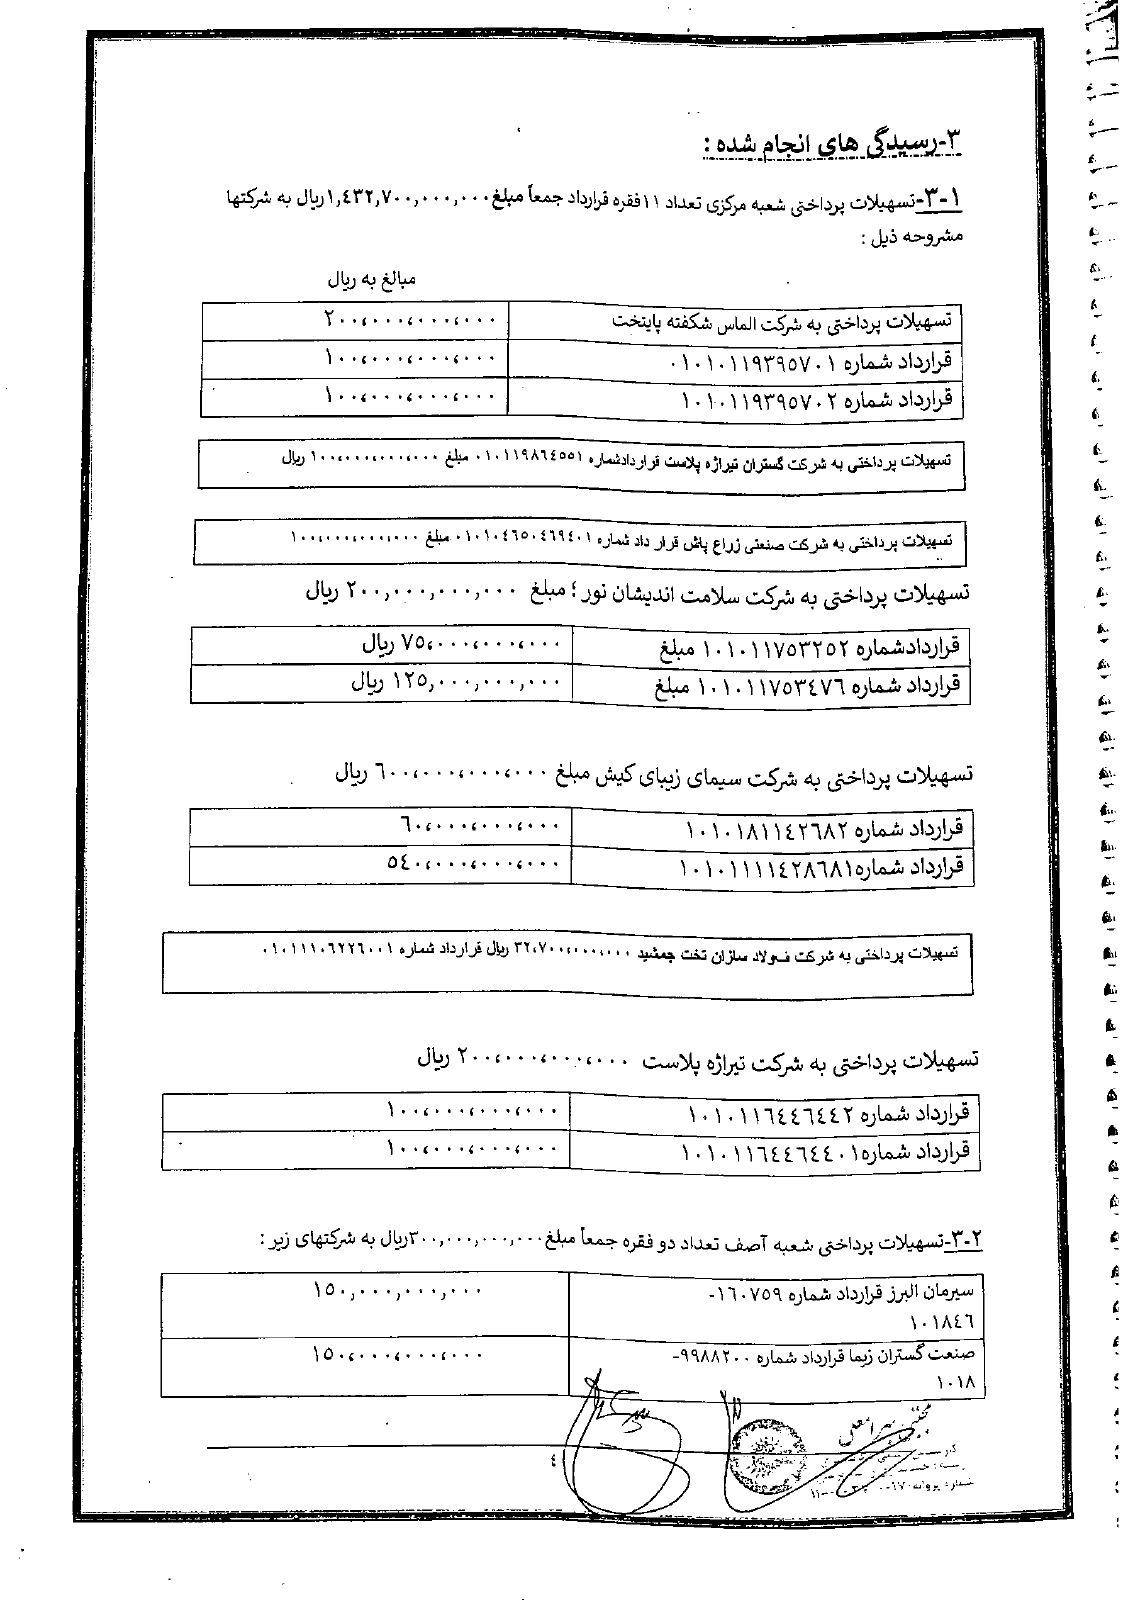 ۳-رسیدگی های انجام شده :
۳-۱-تسهیلات پرداختی شعبه مرکزی تعداد ۱۱فقره قرارداد جمعاً مبلغ۱,٤۳۲,۷۰۰,۰۰۰,۰۰۰ریال به شرکتها
مشروحه ذیل :
مبالغ به ریال
تسهیلات پرداختی به شرکت الماس شکفته پایتخت ۲۰۰،۰۰۰،۰۰۰،۰۰۰
قرارداد شماره ۰۱۰۱۰۱۱۹۳۹۵۷۰۱ ۱۰۰،۰۰۰،۰۰۰،۰۰۰
قرارداد شماره ۱۰۱۰۱۱۹۳۹۵۷۰۲ ۱۰۰،۰۰۰،۰۰۰،۰۰۰
تسهیلات پرداختی به شرکت گستران تیراژه پلاست قراردادشماره ۰۱۰۱۱۹۸٦٤۵۵۱ مبلغ ۱۰۰،۰۰۰،۰۰۰،۰۰۰ ریال
تسهیلات پرداختی به شرکت صنعتی زراع پاش قرار داد شماره ۰۱۰۱۰٤٦۵۰٤٦۹٤۰۱ مبلغ ۱۰۰،۰۰۰،۰۰۰،۰۰۰
تسهیلات پرداختی به شرکت سلامت اندیشان نور ؛ مبلغ ۲۰۰,۰۰۰,۰۰۰,۰۰۰ ریال
قراردادشماره ۱۰۱۰۱۱۷۵۳۲۵۲ مبلغ ۷۵،۰۰۰،۰۰۰،۰۰۰ ریال
قرارداد شماره ۱۰۱۰۱۱۷۵۳٤۷٦ مبلغ ۱۲۵,۰۰۰,۰۰۰,۰۰۰ ریال
تسهیلات پرداختی به شرکت سیمای زیبای کیش مبلغ ٦۰۰،۰۰۰،۰۰۰،۰۰۰ ریال
قرارداد شماره ۱۰۱۰۱۸۱۱٤۲٦۸۲ ٦۰،۰۰۰،۰۰۰،۰۰۰
قرارداد شماره۱۰۱۰۱۱۱۱٤۲۸٦۸۱ ۵٤۰،۰۰۰،۰۰۰،۰۰۰
تسهیلات پرداختی به شرکت فولاد سازان تخت جمشید ۳۲،۷۰۰،۰۰۰،۰۰۰ ریال قرارداد شماره ۰۱۰۱۱۱۰٦۲۲٦۰۰۱
تسهیلات پرداختی به شرکت تیراژه پلاست ۲۰۰،۰۰۰،۰۰۰،۰۰۰ ریال
قرارداد شماره ۱۰۱۰۱۱٦٤٤٦٤٤۲ ۱۰۰،۰۰۰،۰۰۰،۰۰۰
قرارداد شماره۱۰۱۰۱۱٦٤٤٦٤٤۰۱ ۱۰۰،۰۰۰،۰۰۰،۰۰۰
۳-۲-تسهیلات پرداختی شعبه آصف تعداد دو فقره جمعاً مبلغ۳۰۰,۰۰۰,۰۰۰,۰۰۰ریال به شرکتهای زیر :
سیرمان البرز قرارداد شماره ۱٦۰۷۵۹- ۱۵۰,۰۰۰,۰۰۰,۰۰۰
۱۰۱۸٤٦
صنعت گستران زیما قرارداد شماره ۹۹۸۸۲۰۰- ۱۵۰،۰۰۰،۰۰۰،۰۰۰
۱۰۱۸
شماره پروانه
٤